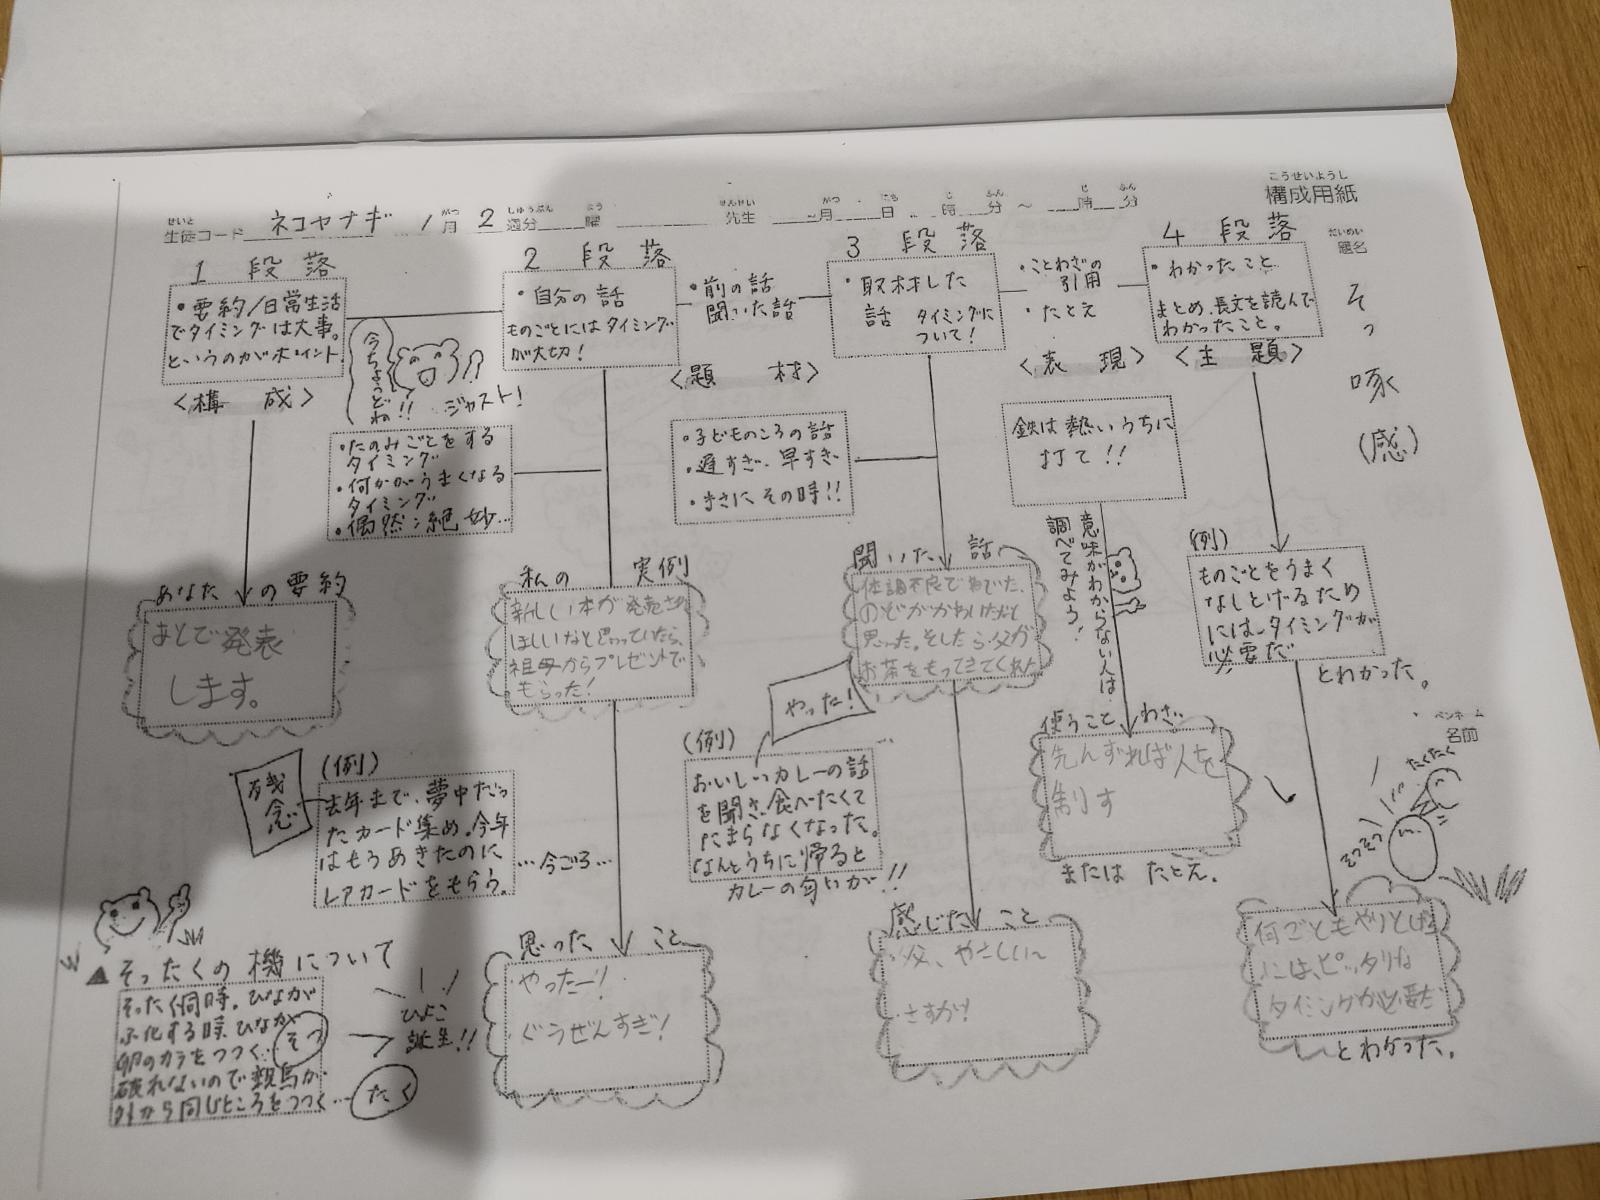 こうせいようし
構成用紙
せいと
生徒コード ネコヤナギ 1月 2週分 曜 先生 月 日 時 分 ～ 時 分
だいめい
題名
そっ啄(感)
1段落
・要約/日常生活
でタイミングは大事。
というのがポイント。
<構 成>
今ちょうどね!!
ジャスト!
2段落
・自分の話
ものごとにはタイミング
が大切!
・前の話
聞いた話
<題 材>
3段落
・取材した
話 タイミングに
ついて!
・ことわざの
引用
・たとえ
<表 現>
4段落
・わかったこと
まとめ、長文を読んで
わかったこと。
<主 題>
・たのみごとをする
タイミング
・何かがうまくなる
タイミング
・偶然:絶妙…
・子どものころの話
・遅すぎ、早すぎ
・まさにその時!!
鉄は熱いうちに
打て!!
意味がわからない人は
調べてみよう!
あなたの要約
あとで発表
します。
私の実例
新しい本が発売され
ほしいなと思っていたら、
祖母からプレゼントで
もらった!
聞いた話
体調不良でねていた。
のどがかわいたなと
思った。そしたら父が
お茶をもってきてくれた
(例)
ものごとをうまく
なしとげるため
には、タイミングが
必要だ
とわかった。
残念
(例)
去年まで、夢中だっ
たカード集め。今年
はもうあきたのに
レアカードをもらう。
…今ごろ…
やった!
(例)
おいしいカレーの話
を聞き、食べたくて
たまらなくなった。
なんとうちに帰ると
カレーの匂いが!!
使うことわざ
先んずれば人を
制す
または たとえ。
ペンネーム
名前
たくたく
そつそつ
▲そったくの機について
そったく同時。ひなが
ふ化する時、ひなが
卵のカラをつつく…そつ
破れないので親鳥が
外から同じところをつつく…たく
ひよこ
誕生!!
思ったこと
やったー!
ぐうぜんすぎ!
感じたこと
父、やさしい～
さすが!
何ごともやりとげる
には、ピッタリな
タイミングが必要だ
とわかった。